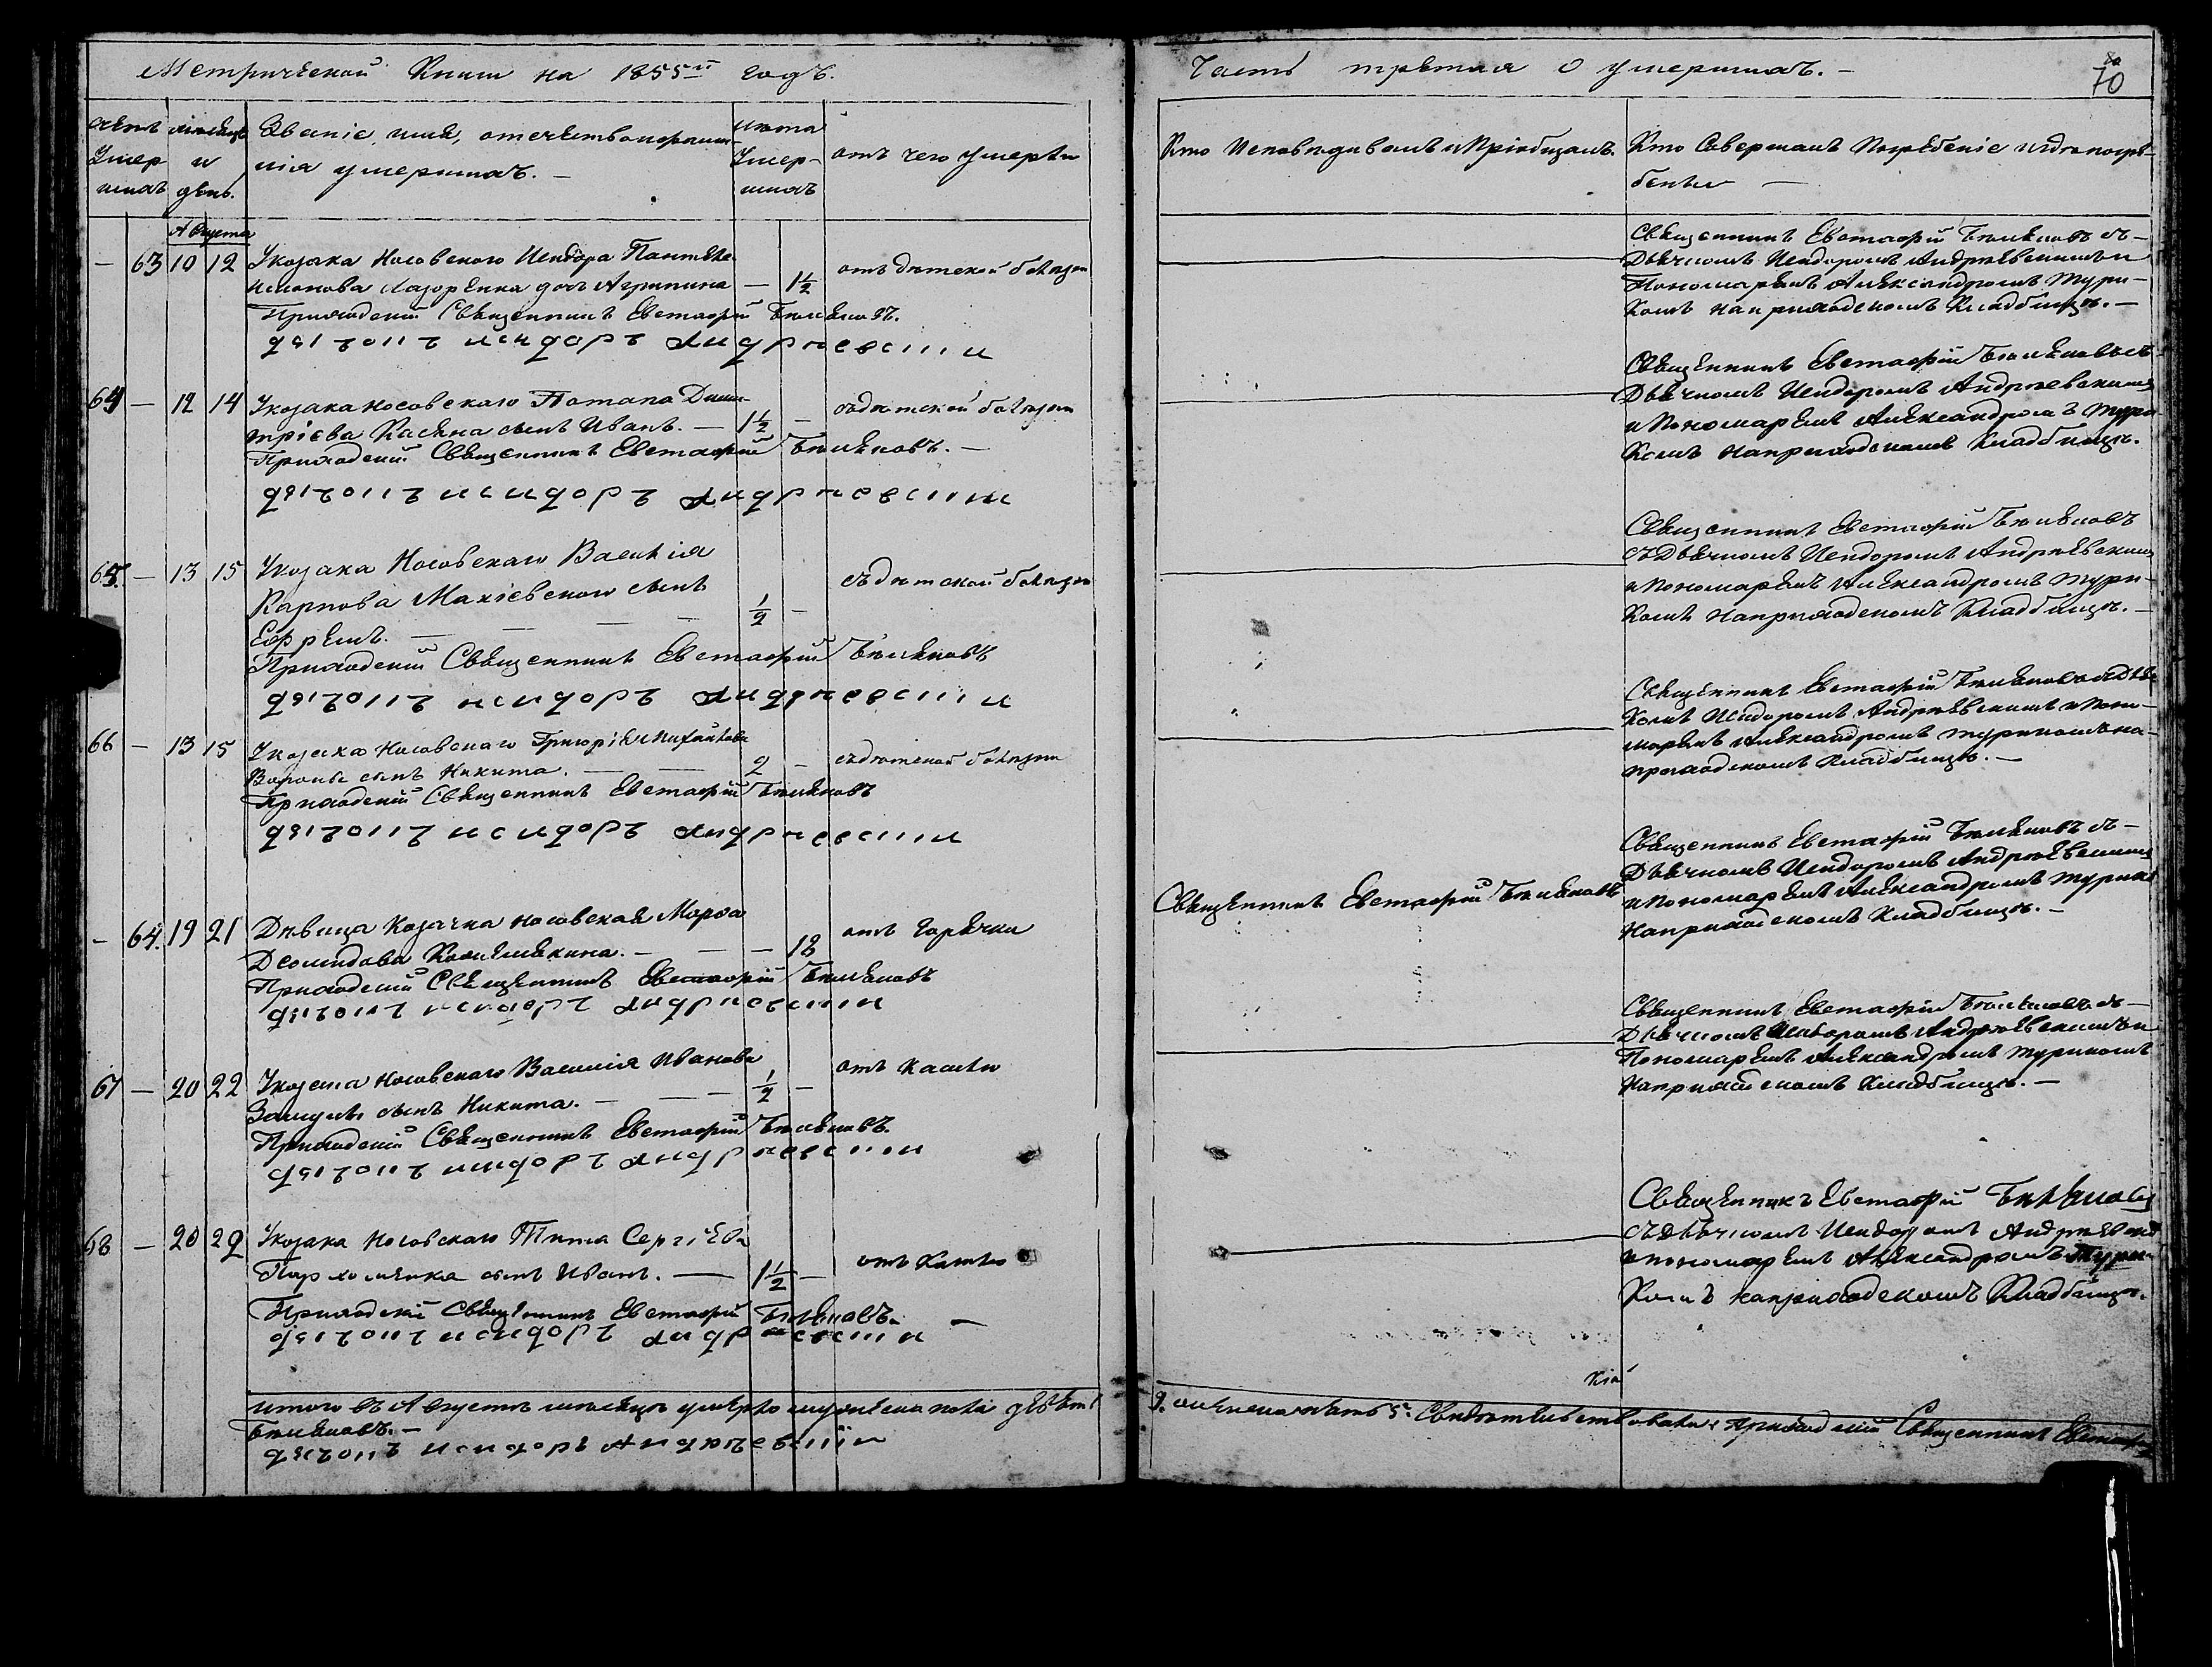 Метрической Книги на 1855й годъ.
Часть третая о умершихъ. —
70
счетъ умершихъ
мѣсяцъ и день.
Званіе, имя, отечество и фамилія умершихъ. —
лѣта умершихъ
отъ чего умерли
Кто Исповѣдывалъ и Пріобщалъ.
Кто Совершалъ Погребеніе и гдѣ погребены —
Августа
— 63 10 12 У козака Носовского Исидора Пантеле-
имонова Лазоренка дочь Агрипина — 1½ отъ дѣтской болѣзни
Приходскій Священникъ Евстафій Бѣляновъ.
дячокъ исидоръ Андріевскій
Священникъ Евстафій Бѣляновъ съ
Дьячкомъ Исидоромъ Андріевскимъ и
Пономаремъ Александромъ Тури-
комъ на приходскомъ Кладбищѣ. —
64 — 12 14 У козака носовскаго Потапа Дими-
трієва Касяна сынъ Иванъ. — 1½ — одѣтской болѣзни
Приходскій Священникъ Евстафій Бѣляновъ. —
дячокъ исидоръ Андріевскій
Священникъ Евстафій Бѣляновъ съ
Дьячкомъ Исидоромъ Андріевскимъ
и Пономаремъ Александромъ Тури
комъ на приходскомъ Кладбищѣ.
65. — 13 15 У козака Носовскаго Василія
Карпова Махієвского сынъ ½ —
Ефремъ. —
Приходскій Священникъ Евстафій Бѣляновъ
дячокъ исидоръ Андріевскій
Священникъ Евстафій Бѣляновъ
съ Дьячкомъ Исидоромъ Андріевскимъ
и Пономаремъ Александромъ Тури-
комъ на приходскомъ Кладбищѣ. —
66 — 13 15 У козака Носовскаго Григорія Михайлова
Вороны сынъ Никита. — 2 —
Приходскій Священникъ Евстафій Бѣляновъ
дячокъ исидоръ Андріевскій
Священникъ Евстафій Бѣляновъ съ Дьяч-
комъ Исидоромъ Андріевскимъ и Поно-
маремъ Александромъ Турикомъ на-
приходскомъ Кладбищѣ. —
— 64. 19 21 Дѣвица Козачка носовская Марфа
Деомидова — 18 отъ Горячки
Приходскій Священникъ Евстафій Бѣляновъ
дячокъ исидоръ Андріевскій
Священникъ Евстафій Бѣляновъ
Священникъ Евстафій Бѣляновъ съ —
Дьячкомъ Исидоромъ Андріевскимъ
и Пономаремъ Александромъ Турико
На приходскомъ Кладбищѣ. —
67 — 20 22 У козака носовскаго Василія Иванова
сынъ Никита. — ½ — отъ кашлю
Приходскій Священникъ Евстафій Бѣляновъ.
дячокъ исидоръ Андріевскій
Священникъ Евстафій Бѣляновъ съ —
Дьячкомъ Исидоромъ Андріевскимъ и
Пономаремъ Александромъ Турикомъ
На приходскомъ Кладбищѣ. —
68 — 20 22 У козака Носовскаго Тита Сергіева
Пархоменка сынъ Иванъ. — 1½ — отъ Кашлю
Приходскій Священникъ Евстафій Бѣляновъ. —
дячокъ исидоръ Андріевскій
Священникъ Евстафій Бѣляновъ
съ дьячкомъ Исидоромъ Андріевски
и пономаремъ Александромъ Тури-
комъ на приходскомъ Кладбищѣ.
итого въ Августѣ мѣсяцѣ умерло мужеска пола девять 9. а женска пять 5. Свидѣтельствовали: Приходскій Священникъ Евстафій
Бѣляновъ. —
дячокъ исидоръ Андріевскій